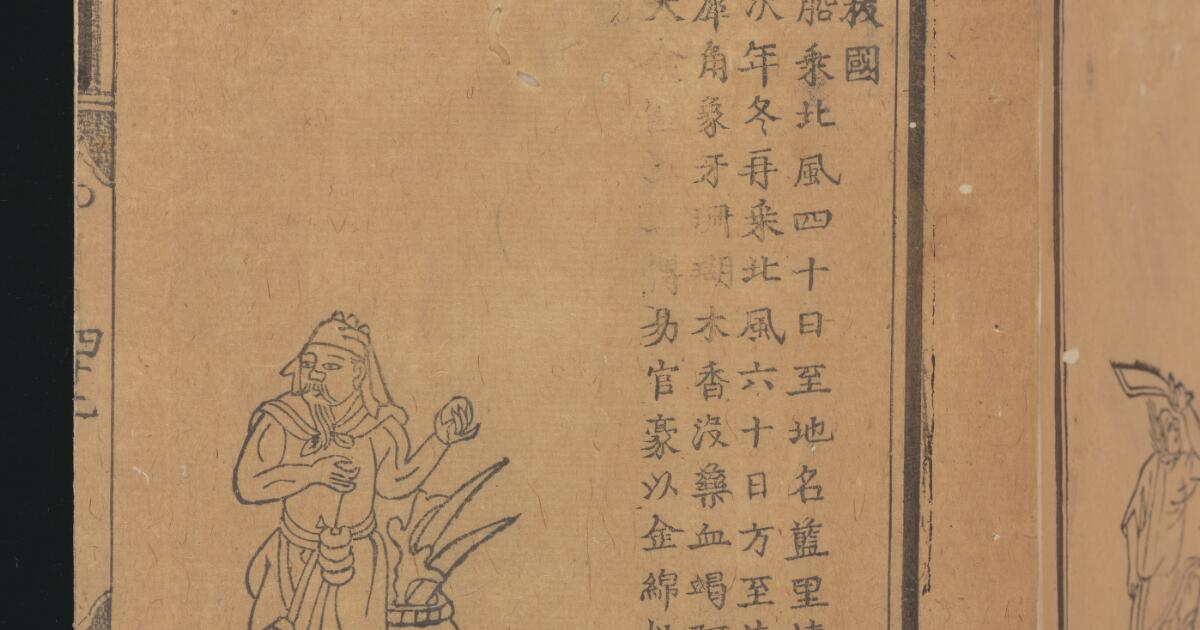 國
船乘北風四十日至地名藍里
次年冬再乘北風六十日方至
犀角象牙珊瑚木香沒藥血竭
大 博易官豪以金綿
四十七